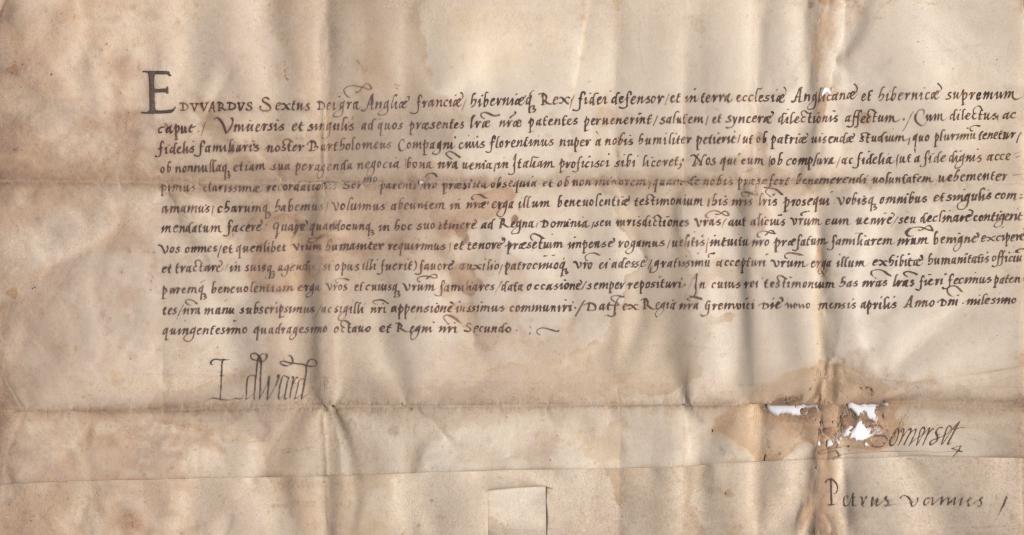 EDVVARDVS Sextus Dei gra Angliæ franciæ, hiberniæq Rex, fidei defensor, et in terra ecclesiæ Anglicanæ et hibernicæ supremum
caput ./ Vniuersis et singulis ad quos præsentes lræ nræ patentes peruenerint, salutem, et synceræ dilectionis affectum ./ Cum dilectus, ac
fidelis familiaris noster Bartholomeus Compagni ciuis florentinus nuper à nobis humiliter petierit, ut ob patriæ uisendæ studium, quo plurimū tenetur,
ob nonnullaq etiam sua peragenda negocia bona nrā uenia, in Italiam proficisci sibi liceret; Nos qui eum, ob complura, ac fidelia, ut a fide dignis acce-
pimus clarissimæ recordationis Sermo parenti nro præstita obsequia et ob non minorem, quam de nobis præsefert benemerendi uoluntatem uehementer
amamus, charumq habemus, uolumus abeuntem in nræ erga illum beneuolentiæ testimonium ibis nris lris prosequi uobisq omnibus et singulis com-
mendatum facere. Quare quandocunq in hoc suo itinere ad Regna, Dominia, seu iurisdictiones vrās, aut alicuius vrūm eum uenire, seu declinare contigerit
Vos omnes, et quenlibet vrūm humaniter requirimus, et tenore præsentium impense rogamus, uelitis, intuitu nro præfatum familiarem nrūm benigne excipere
et tractare, in suisq agendis, si opus illi fuerit) fauore auxilio, patrocinioq vro ei adesse, gratissimū accepturi vrūm erga illum exhibitæ humanitatis officiū
paremq beneuolentiam erga uros et cuiusq vrūm familiares, data occasione, semper reposituri. In cuius rei testimonium has nrās lrās fieri fecimus paten-
tes, nrā manu subscripsimus, ac sigilli nri appensione iussimus communiri./ Dat ex Regia nrā Grenvici Die nono mensis aprilis Anno Dni. milesimo
quingentesimo quadragesimo octauo et Regni nri Secundo.
Edward
Somerset
Petrus vannes